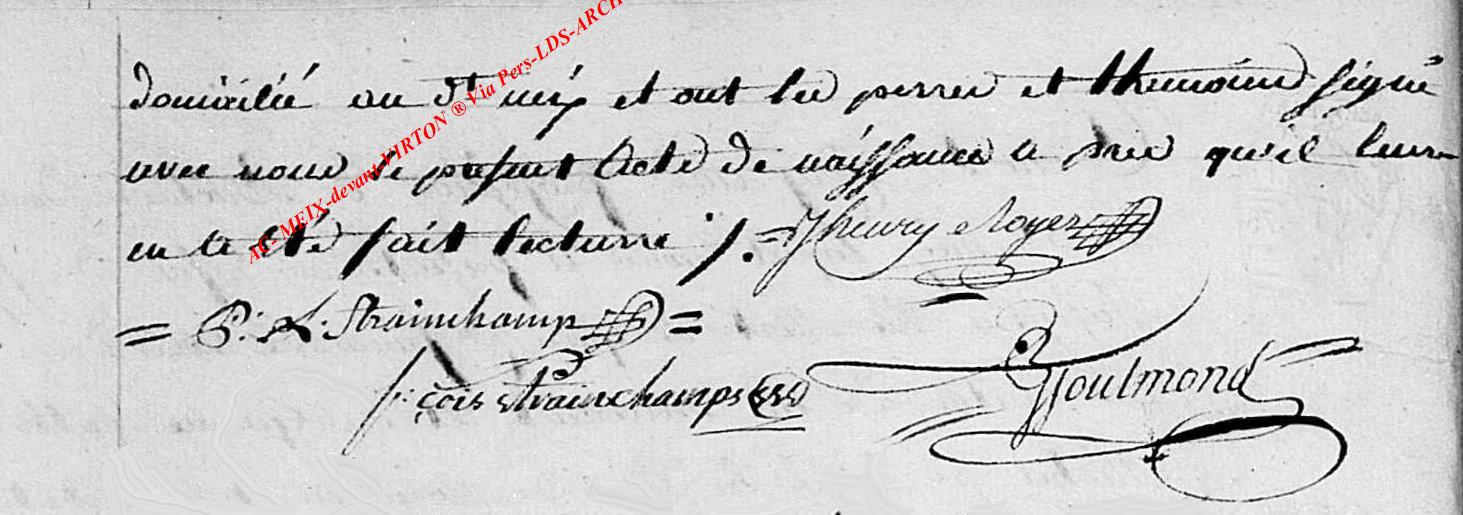 AC-MEIX-devant VIRTON ® Via Pers-LDS-ARCH
domicilié au dt meix et ont les perres et themoins signé
avec nous le present Acte de naissance a pres qu'il leur
en te Eté fait lecture /. = J henry Royer
= P: L: Strainchamp =
f: çois strainchamps
Goulmond